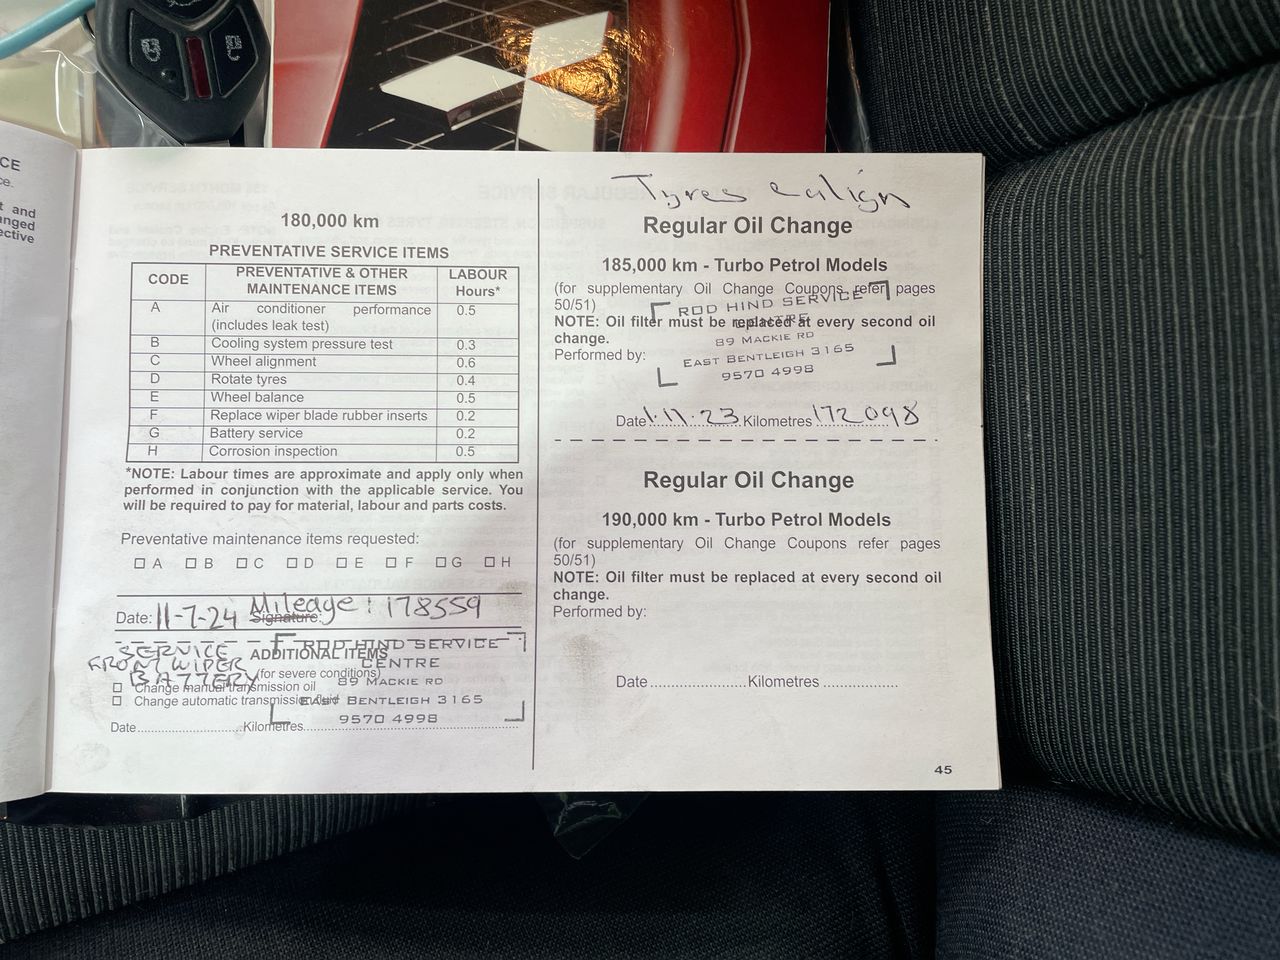 CE
ce.
t and
anged
ective
180,000 km
PREVENTATIVE SERVICE ITEMS
CODE PREVENTATIVE & OTHER MAINTENANCE ITEMS LABOUR Hours*
A Air conditioner performance (includes leak test) 0.5
B Cooling system pressure test 0.3
C Wheel alignment 0.6
D Rotate tyres 0.4
E Wheel balance 0.5
F Replace wiper blade rubber inserts 0.2
G Battery service 0.2
H Corrosion inspection 0.5
*NOTE: Labour times are approximate and apply only when
performed in conjunction with the applicable service. You
will be required to pay for material, labour and parts costs.
Preventative maintenance items requested:
A B C D E F G H
Date: 11-7-24 Signature: Mileage: 178559
SERVICE
FRONT WIPER
BATTERY
ADDITIONAL ITEMS
(for severe conditions)
Change manual transmission oil
Change automatic transmission fluid
Date Kilometres
ROD HIND SERVICE
CENTRE
89 MACKIE RD
EAST BENTLEIGH 3165
9570 4998
Tyres & align
Regular Oil Change
185,000 km - Turbo Petrol Models
(for supplementary Oil Change Coupons refer pages
50/51)
NOTE: Oil filter must be replaced at every second oil
change.
Performed by:
ROD HIND SERVICE
CENTRE
89 MACKIE RD
EAST BENTLEIGH 3165
9570 4998
Date 1.11.23 Kilometres 172098
Regular Oil Change
190,000 km - Turbo Petrol Models
(for supplementary Oil Change Coupons refer pages
50/51)
NOTE: Oil filter must be replaced at every second oil
change.
Performed by:
Date Kilometres
45